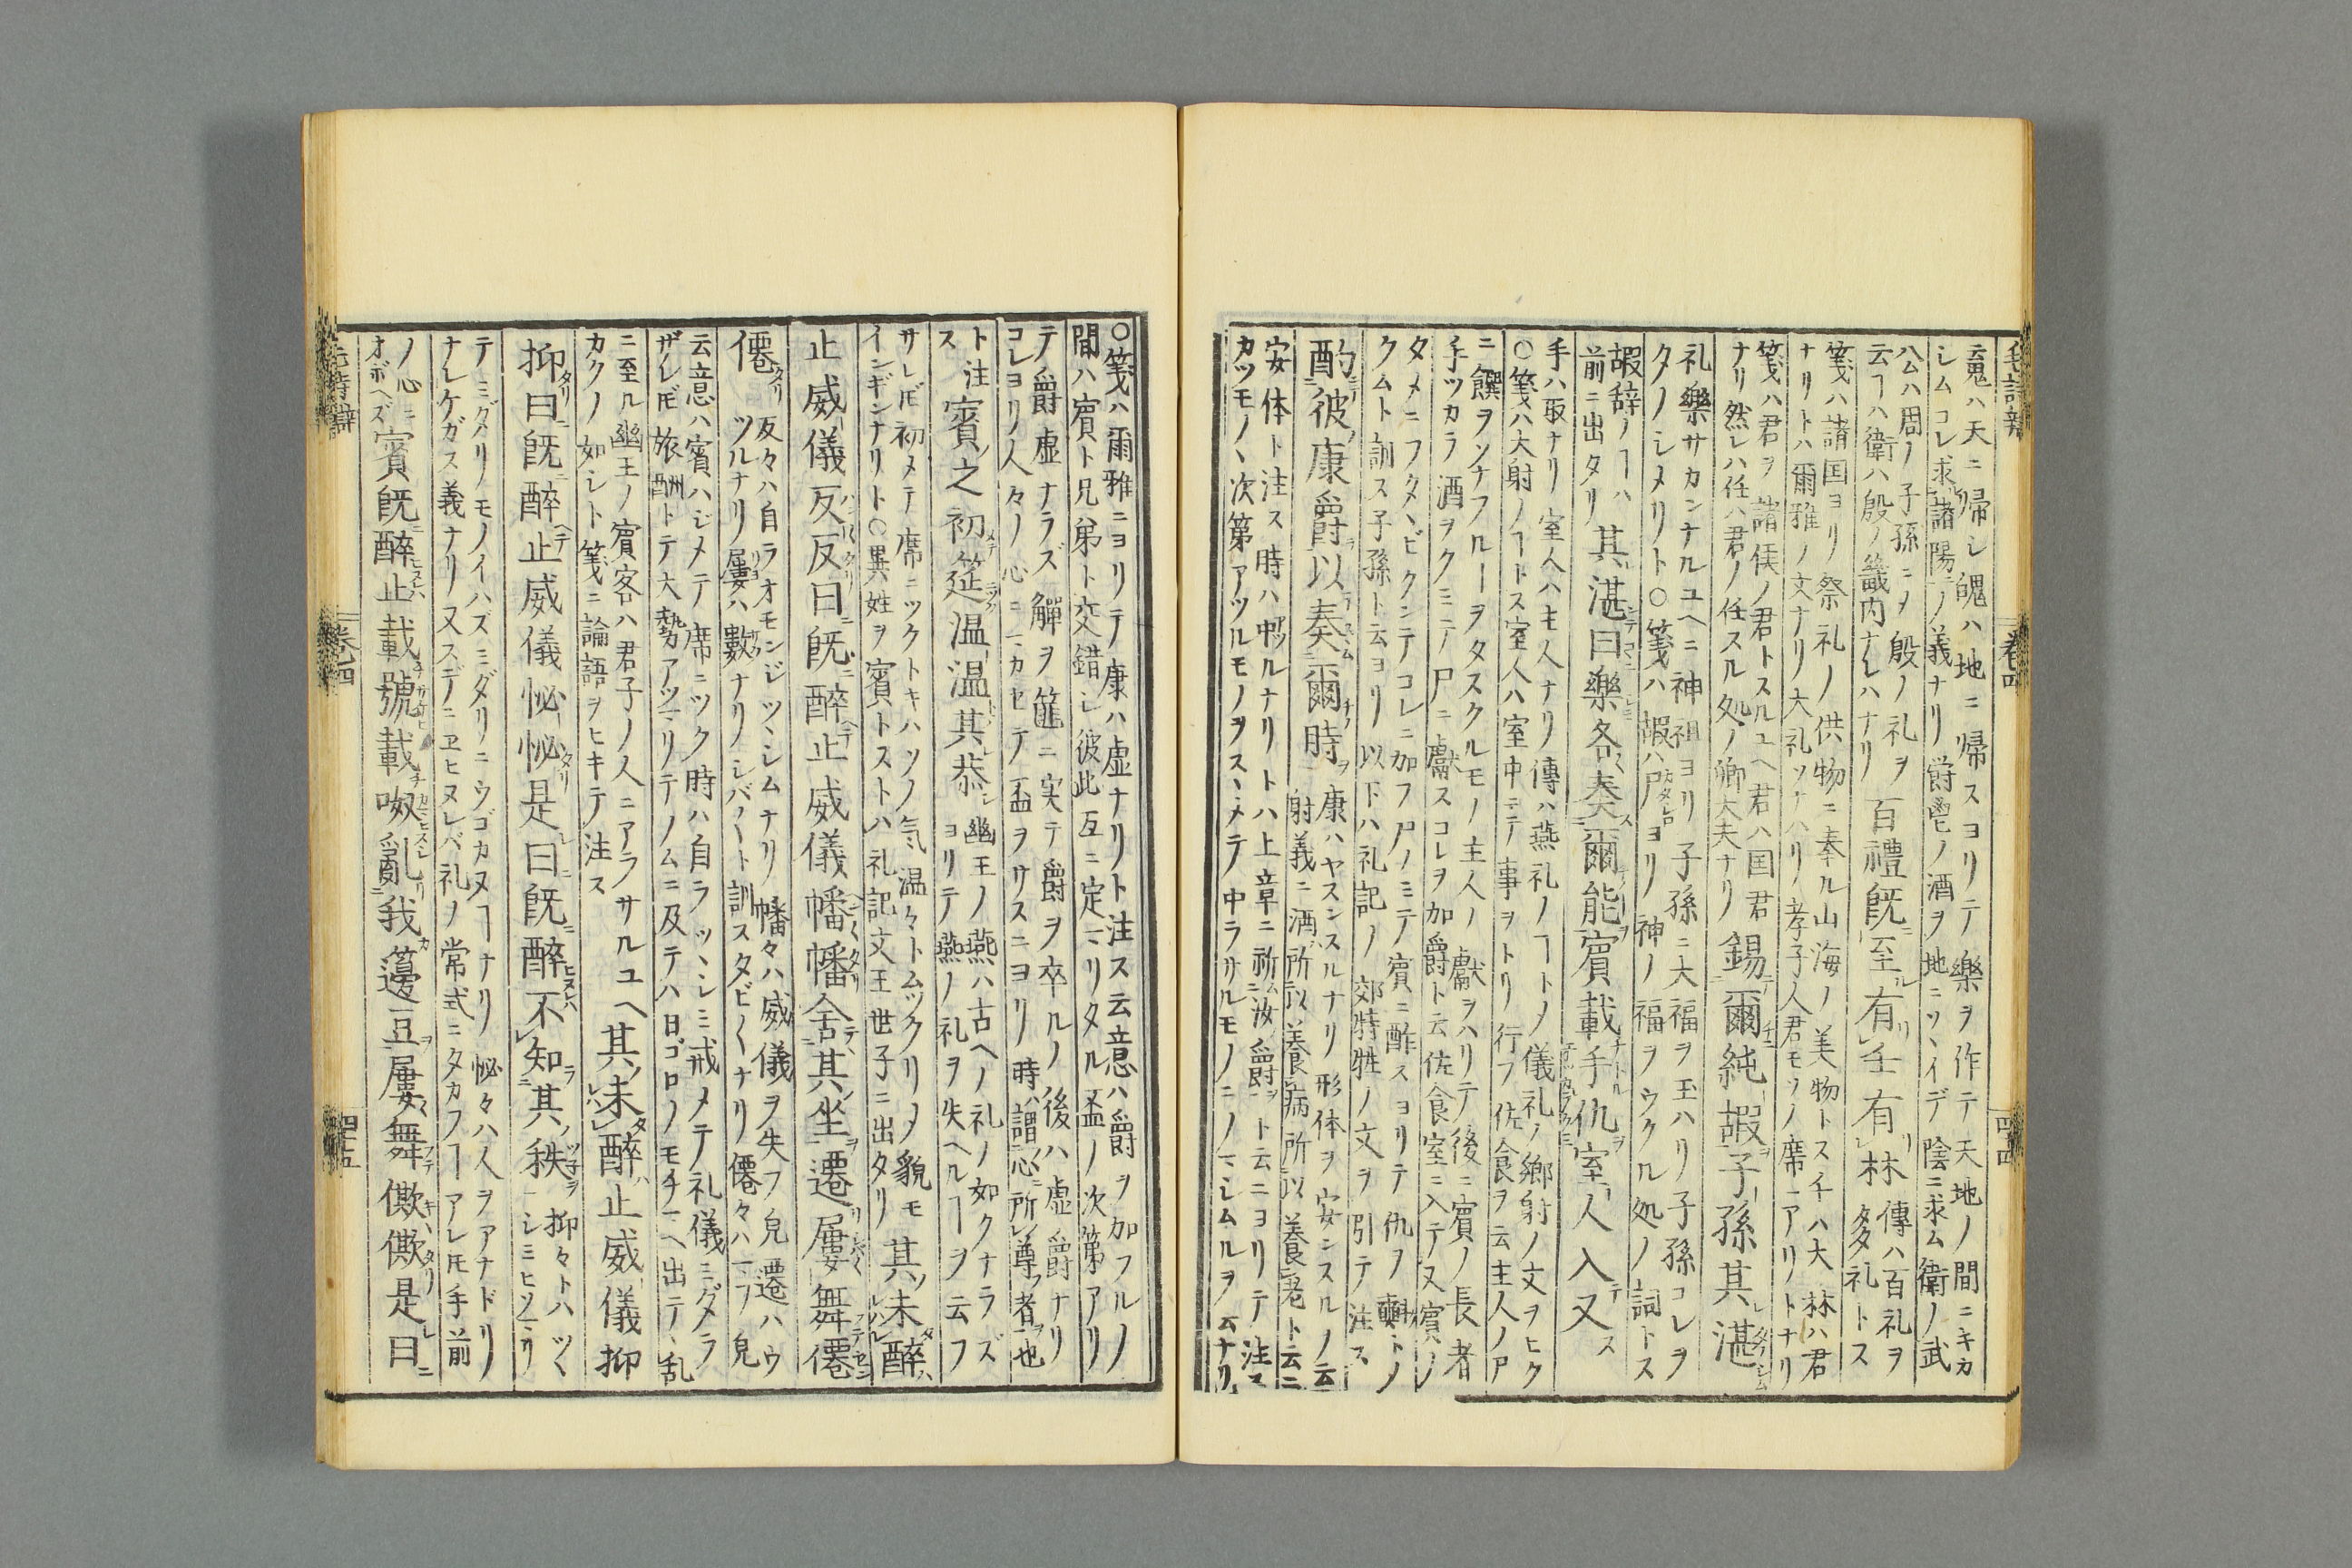 毛詩辨 卷四 四十四
云鬼ハ天ニ帰シ魄ハ地ニ帰スヨリテ樂ヲ作テ天地ノ間ニキカ
シムコレ求諸陽ノ義ナリ爵鬯ノ酒ヲ地ニソヽイデ陰ニ求ム衛ノ武
公ハ周ノ子孫ニ〆殷ノ礼ヲ
云ヿハ衛ハ殷ノ畿内ナレハナリ
百禮既至有壬有林
傳ハ百礼ヲ
多礼トス
箋ハ諸国ヨリ祭礼ノ供物ニ奉ル山海ノ美物トス壬ハ大林ハ君
ナリトハ爾雅ノ文ナリ大礼ソナハリ孝子人君モソノ席ニアリトナリ
箋ハ君ヲ諸侯ノ君トスルユヘ君ハ国君
ナリ然レハ任ハ君ノ任スル処ノ卿大夫ナリ
錫爾純嘏子孫其湛
礼樂サカンナルユヘニ神祖ヨリ子孫ニ大福ヲ玉ハリ子孫コレヲ
タノシメリト○箋ハ嘏ハ尸ヨリ神ノ福ヲウクル処ノ詞トス
嘏辞ノヿハ
前ニ出タリ
其湛曰樂各奏爾能賓載手仇室人入又
手ハ取ナリ室人ハ主人ナリ傳ハ燕礼ノヿト〆儀礼ノ鄉射ノ文ヲヒク
○箋ハ大射ノヿトス室人ハ室中ニテ事ヲトリ行フ佐食ヲ云主人ノ尸
ニ饌ヲソナフルーヲタスクルモノ主人ノ獻ヲハリテ後ニ賓ノ長者
手ツカラ酒ヲクミテ尸ニ獻スコレヲ加爵ト云佐食室ニ入テ又賓ノ
タメニフタヽビクンテコレニ加フ尸ノミテ賓ニ酢スヨリテ仇ヲ𣂏ト〆
クムト訓ス子孫ト云ヨリ以下ハ礼記ノ郊特牲ノ文ヲ引テ注ス
酌彼康爵以奏爾時
康ハヤスンスルナリ形体ヲ安ンスルノ云
射義ニ酒所以養病所以養老ト云ニ
安体ト注ス時ハ中ルナリトハ上章ニ祈汝爵ト云ニヨリテ注ス
カツモノヽ次第アツルモノヲスヽメテ中ラサルモノニノマシムルヲ云ナリ
○箋ハ爾雅ニヨリテ康ハ虚ナリト注ス云意ハ爵ヲ加フルノ
間ハ賓ト兄弟ト交錯シ彼此互ニ定マリタル盃ノ次第アリ
テ爵虚ナラズ觶ヲ篚ニ実テ爵ヲ卒ルノ後ハ虚爵ナリ
コレヨリ人々ノ心ニマカセテ盃ヲサスニヨリ時謂心所尊者也
ト注
ス
賓之初筵温温其恭
幽王ノ燕ハ古ヘノ礼ノ如クナラズ
ヨリテ燕ノ礼ヲ失ヘルヿヲ云フ
サレ𪜈初メテ席ニツクトキハソノ気温々トムツクリ〆貌モ
インギンナリト○異姓ヲ賓トストハ礼記文王世子ニ出タリ
其未醉
止威儀反反曰既醉止威儀幡幡舍其坐遷屢舞僊
僊
反々ハ自ラオモンジツヽシムナリ幡々ハ威儀ヲ失フ皃遷ハウ
ツルナリ屢ハ數ナリシバ〳〵ト訓スタビ〳〵ナリ僊々ハマフ皃
云意ハ賓ハジメテ席ニツク時ハ自ラツヽシミ戒メテ礼儀ミダラ
ザレ𪜈旅酬トテ大勢アツマリテノムニ及テハ日ゴロノモチマヘ出テヽ乱
ニ至ル幽王ノ賓客ハ君子ノ人ニアラサルユヘ
カクノ如シト箋ニ論語ヲヒキテ注ス
其未醉止威儀抑
抑曰既醉止威儀怭怭是曰既醉不知其秩
抑々トハツヽ
シミヒソマリ
テミダリノモノイハズミダリニウゴカヌヿナリ怭々ハ人ヲアナドリ
ナレケガス義ナリスデニヱヒヌレバ礼ノ常式ニタカフヿアレ𪜈手前
ノ心ニ
オボヘズ
賓既醉止載號載呶亂我籩豆屢舞僛僛是曰
毛詩辨 卷四 四十五